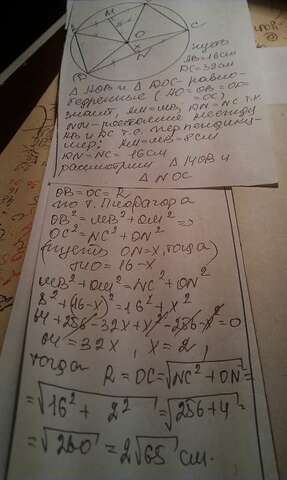 M
C
O
x
N
D
пусть
AB=16см
DC=32см
Δ AOB и Δ DOC - равно-
бедренные ( AO = OB = OD =
= OC )
значит, AM=MB, DN=NC т.к.
NM - расстояние между
AB и DC т.е. перпендику-
ляр; AM=MB=8см
DN=NC= 16см
рассмотрим Δ MOB и
Δ NOC
OB=OC=R
по т. Пифагора
OB²=MB²+OM² =>
OC²=NC²+ON²
(пусть ON=x, тогда
MO=16-x)
MB²+OM²=NC²+ON²
8²+(16-x)²=16²+x²
64+256-32x+x²-256-x²=0
64=32x, x=2,
тогда
R=OC=√NC²+ON²=
=√16²+2²=√256+4=
=√260=2√65 см.